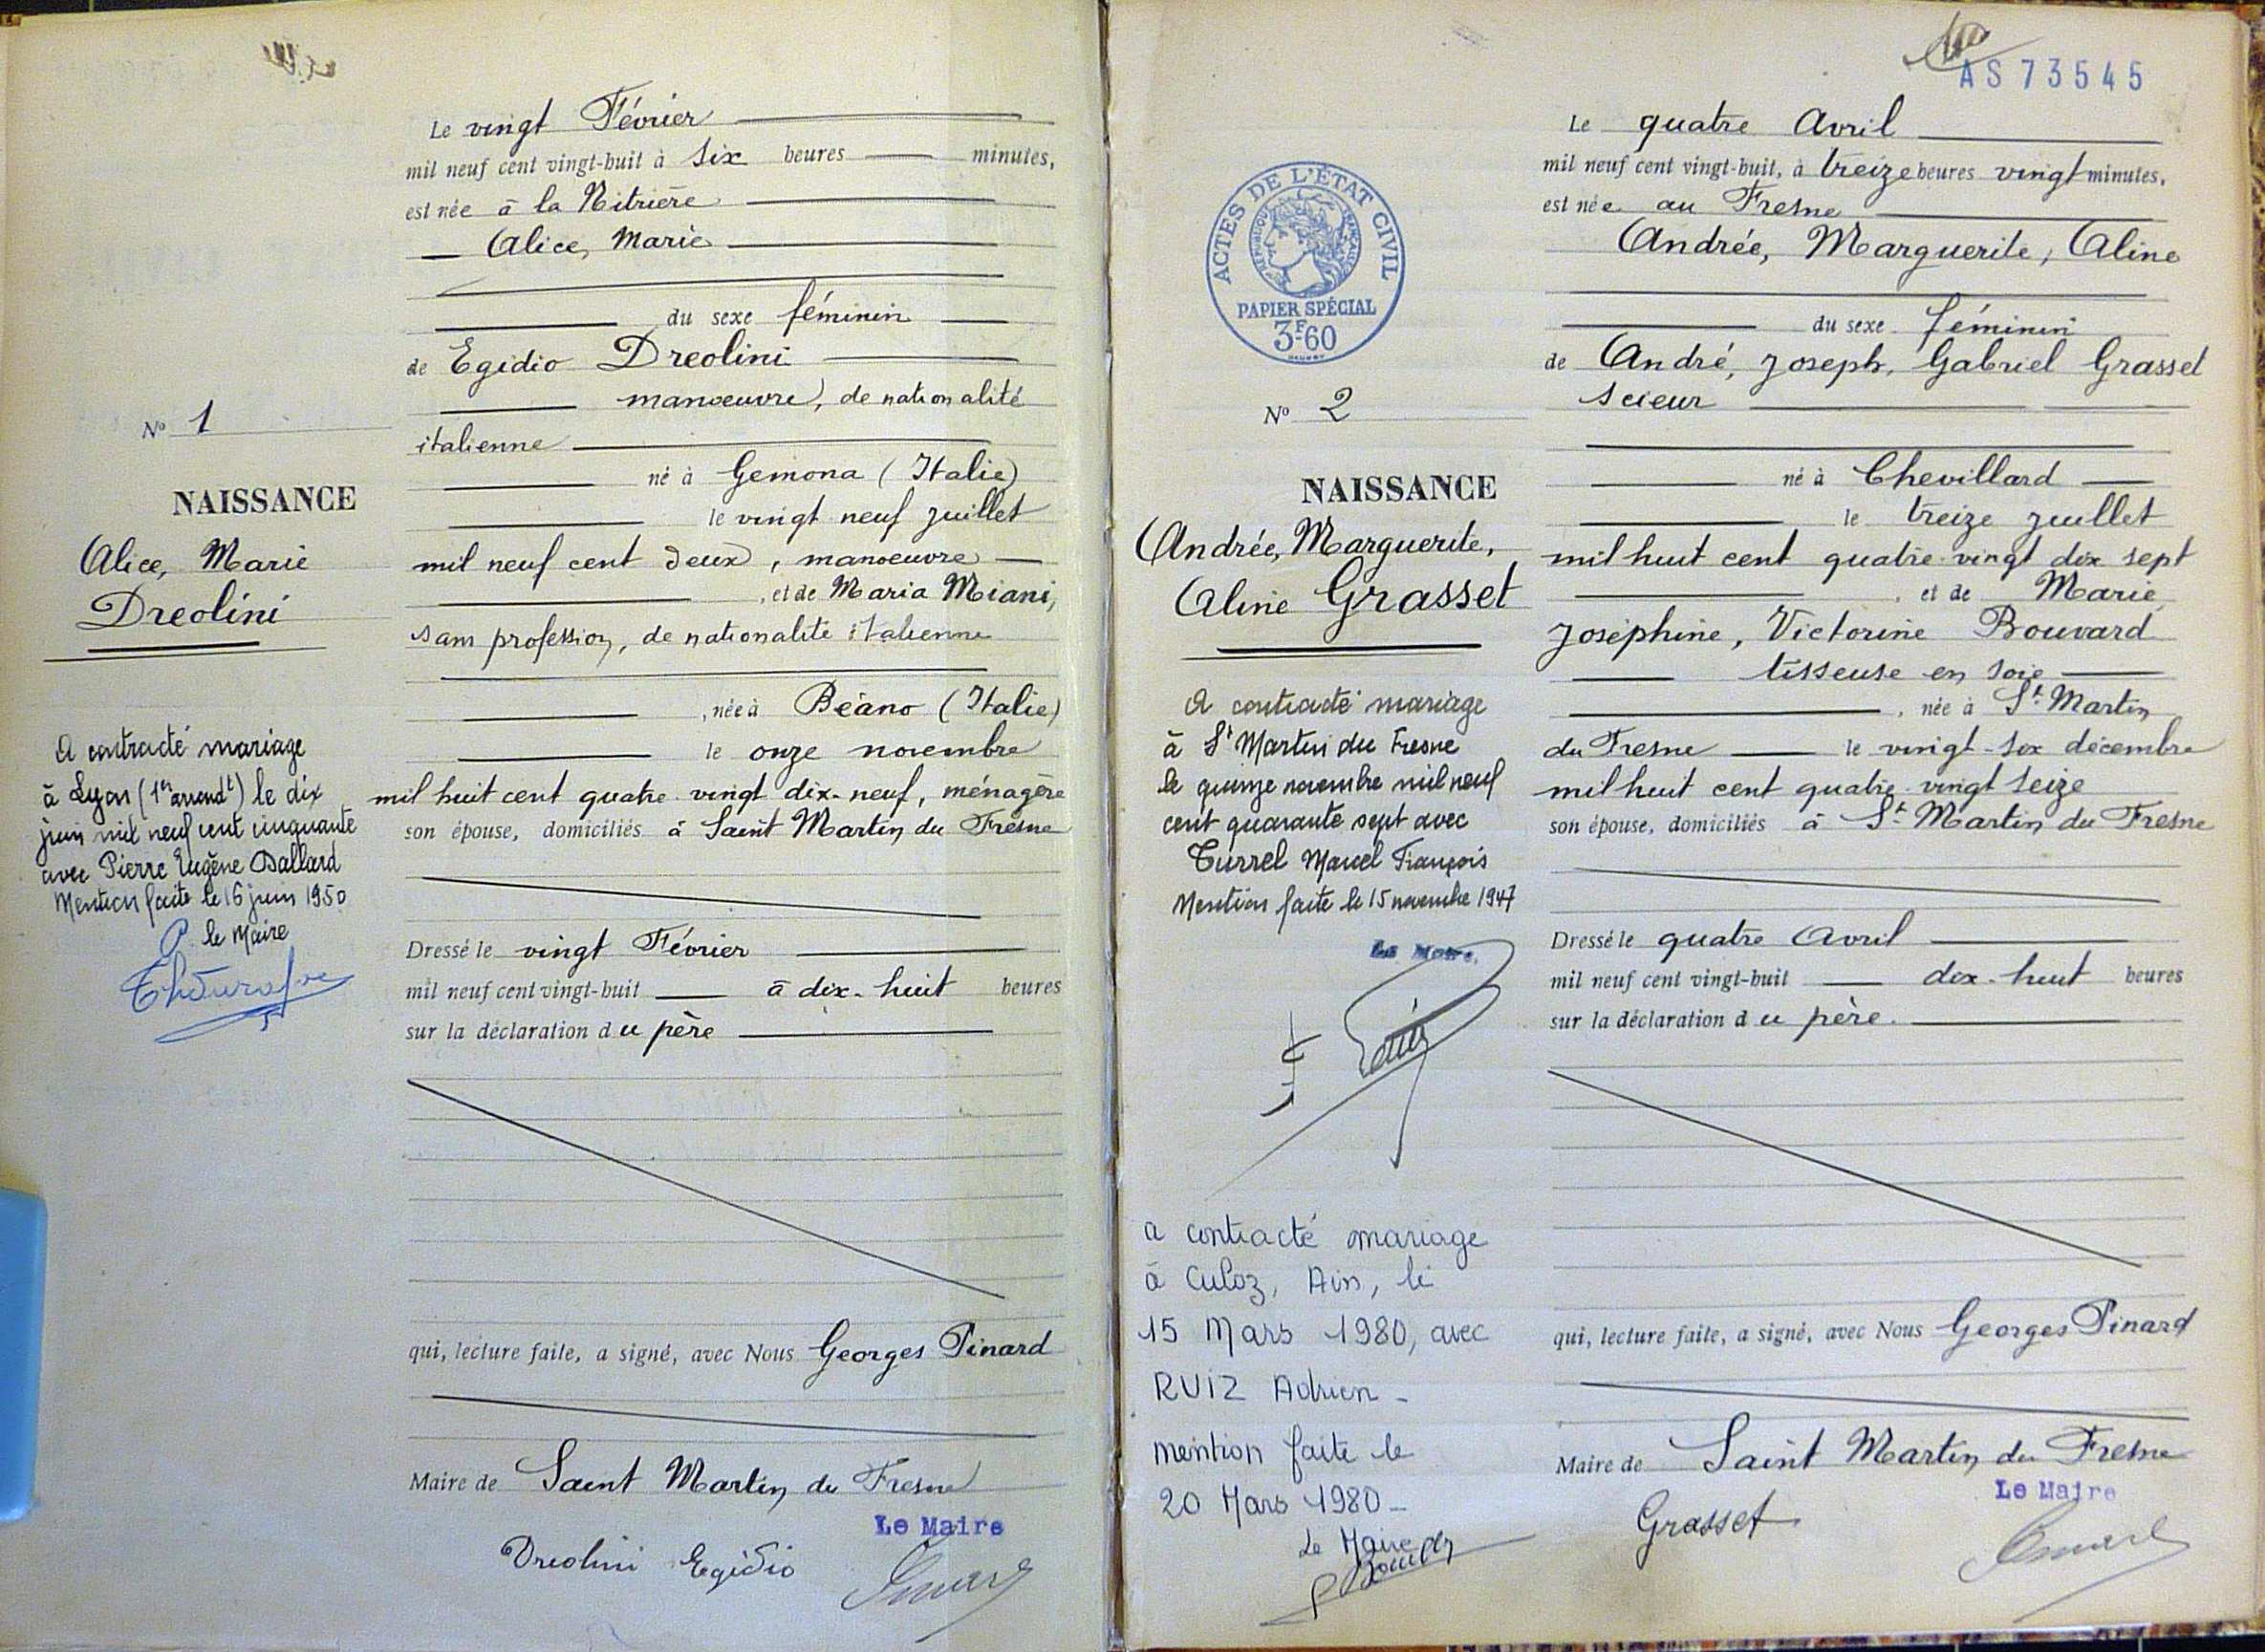 Le vingt Février
mil neuf cent vingt-huit à six heures minutes,
est née à la Nitrière
Alice, Marie
du sexe féminin
de Egidio Dreolini
manoeuvre, de nationalité
italienne
né à Gemona (Italie)
le vingt neuf juillet
mil neuf cent deux, manoeuvre
, et de Maria Miani,
sans profession, de nationalité italienne
, née à Béano (Italie)
le onze novembre
mil huit cent quatre vingt dix-neuf, ménagère
son épouse, domiciliés à Saint Martin du Fresne
Dressé le vingt Février
mil neuf cent vingt-huit à dix-huit heures
sur la déclaration du père
qui, lecture faite, a signé, avec Nous Georges Pinard
Maire de Saint Martin du Fresne
Le Maire
Dreolini Egidio
N° 1
NAISSANCE
Alice, Marie
Dreolini
A contracté mariage
à Lyon (1er arrondt) le dix
juin mil neuf cent cinquante
avec Pierre Eugène Dallard
Mention faite le 16 juin 1950
P. le Maire
AS 73545
ACTES DE L'ÉTAT CIVIL
RÉPUBLIQUE FRANÇAISE
PAPIER SPÉCIAL
3F60
N° 2
NAISSANCE
Andrée, Marguerite,
Aline Grasset
A contracté mariage
à St Martin du Fresne
le quinze novembre mil neuf
cent quarante sept avec
Turrel Marcel François
Mention faite le 15 novembre 1947
Le Maire,
a contracté mariage
à Culoz, Ain, le
15 Mars 1980, avec
RUIZ Adrien -
mention faite le
20 Mars 1980 -
Le Maire
Le quatre Avril
mil neuf cent vingt-huit, à treize heures vingt minutes,
est née au Fresne
Andrée, Marguerite, Aline
du sexe féminin
de André, Joseph, Gabriel Grasset
scieur
né à Chevillard
le treize juillet
mil huit cent quatre-vingt dix sept
, et de Marie
Joséphine, Victorine Bouvard
tisseuse en soie
, née à St Martin
du Fresne le vingt-six décembre
mil huit cent quatre-vingt seize
son épouse, domiciliés à St Martin du Fresne
Dressé le quatre Avril
mil neuf cent vingt-huit dix-huit heures
sur la déclaration du père.
qui, lecture faite, a signé, avec Nous Georges Pinard
Maire de Saint Martin du Fresne
Le Maire
Grasset